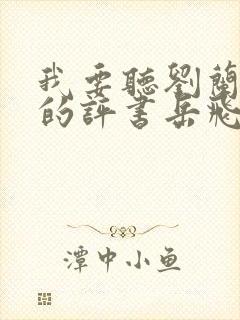 我要聽劉蘭
的評書岳飛
潭中小鱼